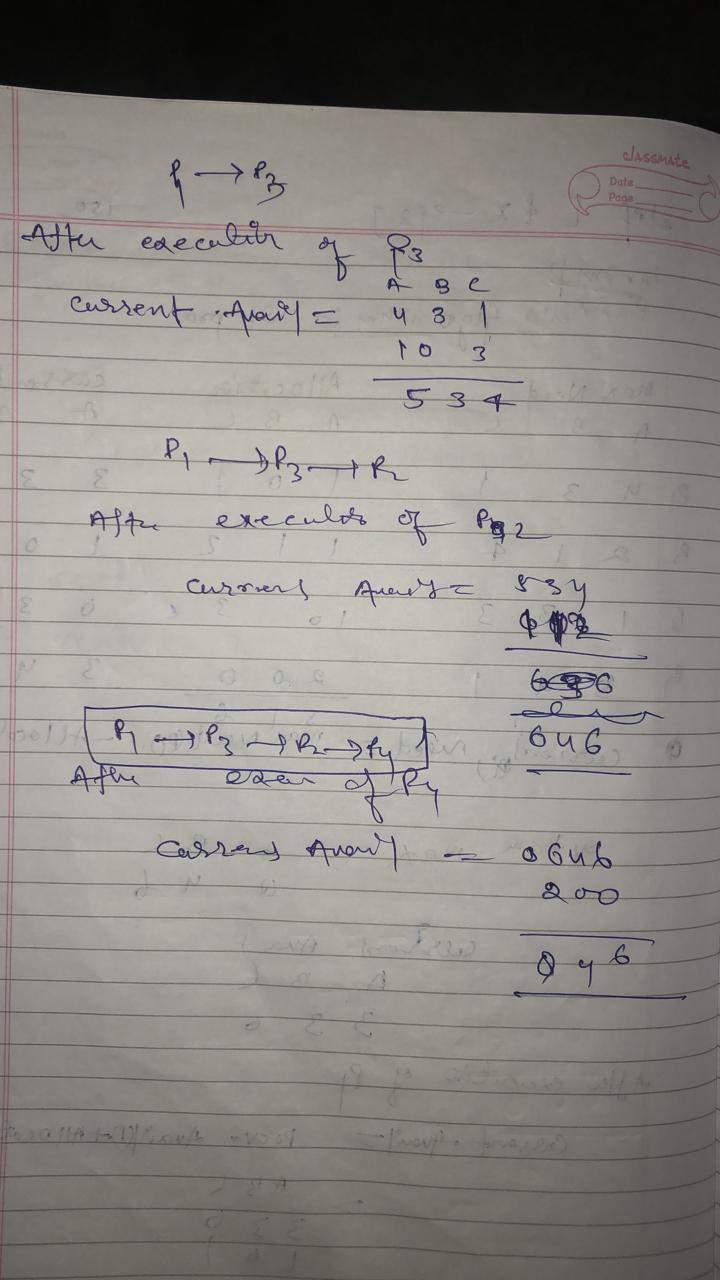 classmate
Date
Page
P1 → P3
After execution of P3
A B C
Current Avail = 4 3 1
1 0 3
5 3 4
P1 → P3 → P2
After execution of P2
Current Avail = 5 3 4
1 1 2
6 6
6 4 6
P1 → P3 → P2 → P4
After exec of P4
Current Avail = 6 4 6
2 0 0
4 6